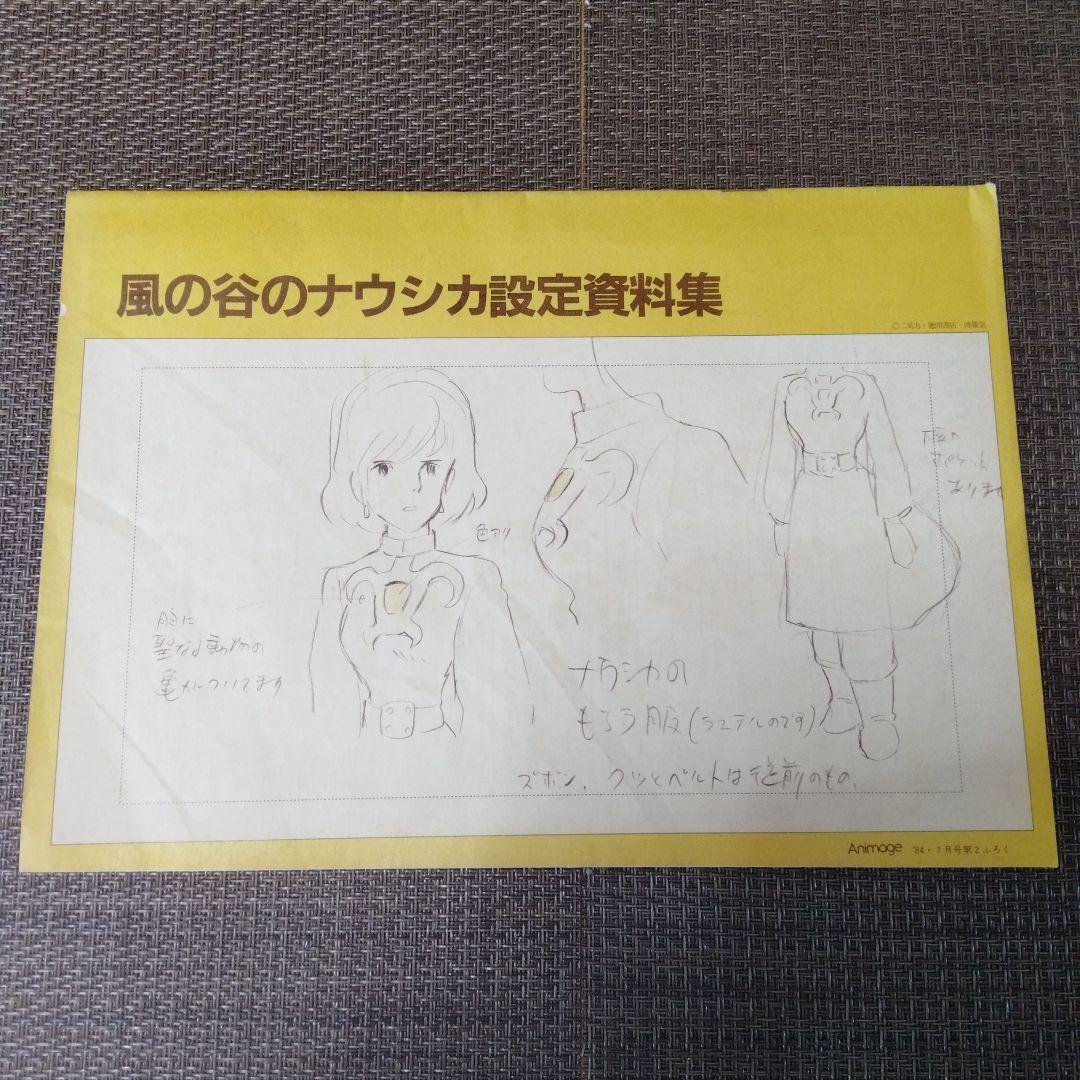 風の谷のナウシカ設定資料集
©二馬力・徳間書店・博報堂
ポケット
あります
色アリ
胸に
聖なる動物の
ついてます
ナウシカの
もらう服(ラステルのです)
ズボン、クツとベルトは従前のもの、
Animage '84・7月号第2ふろく